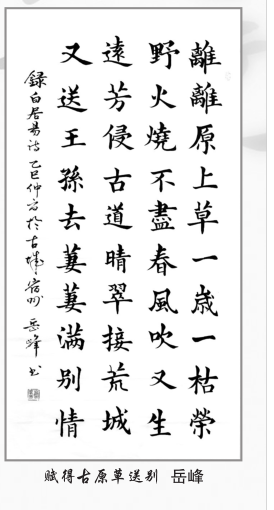 離離原上草一歳一枯榮
野火燒不盡春風吹又生
遠芳侵古道晴翠接荒城
又送王孫去萋萋满别情
録白居易诗乙巳仲方於古城宿州岳峰书
赋得古原草送别 岳峰